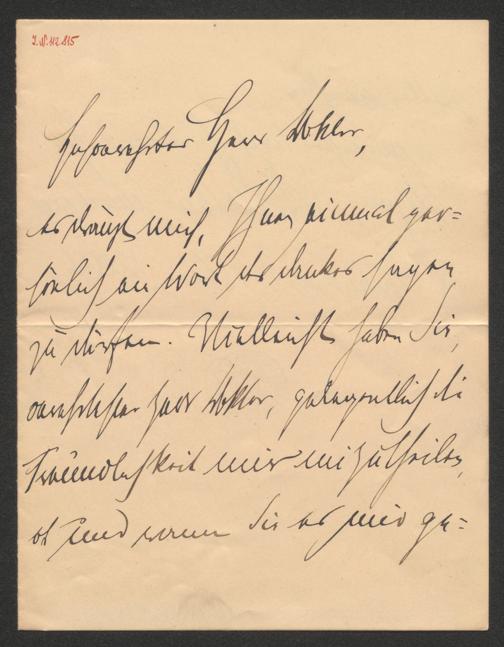 I.N. 112.815
Hochverehrter Herr Doktor,
es drängt mich, Ihnen einmal per=
sönlich ein Wort des Dankes sagen
zu dürfen. Vielleicht haben Sie,
verehrtester Herr Doktor, gelegentlich die
Freundlichkeit mir mitzutheilen,
ob und wann Sie es mir ge=